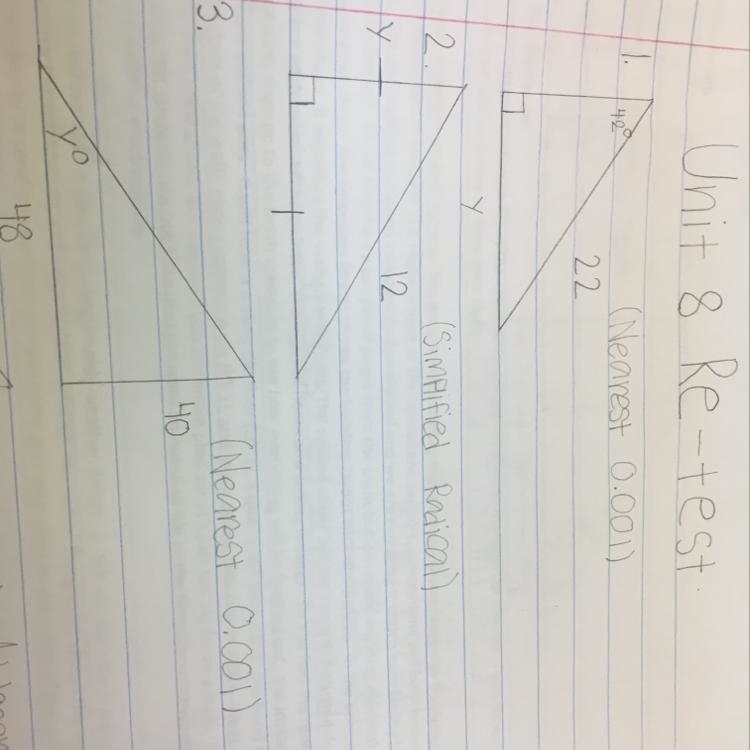 Unit 8 Re-test
1.
42°
22
y
(Nearest 0.001)
2.
y
12
(Simplified Radical)
3.
y°
48
40
(Nearest 0.001)